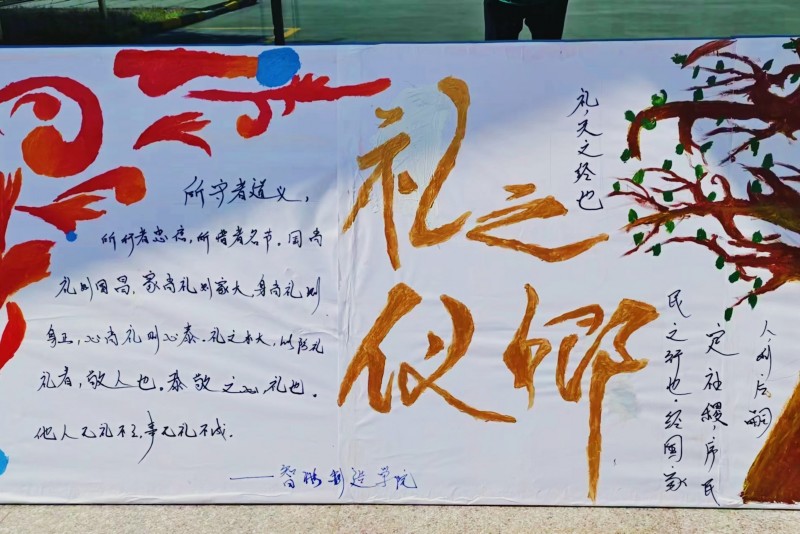 礼仪
之邦
所守者道义，
所行者忠信，所惜者名节。国尚
礼则国昌，家尚礼则家大，身尚礼则
身正，心尚礼则心泰。礼之本大，以
礼者，敬人也。恭敬之心，礼也。
人无礼不立，事无礼不成.
——智能制造学院
礼，天之经也
民之行也.经国家
定社稷，序民
人，利后嗣